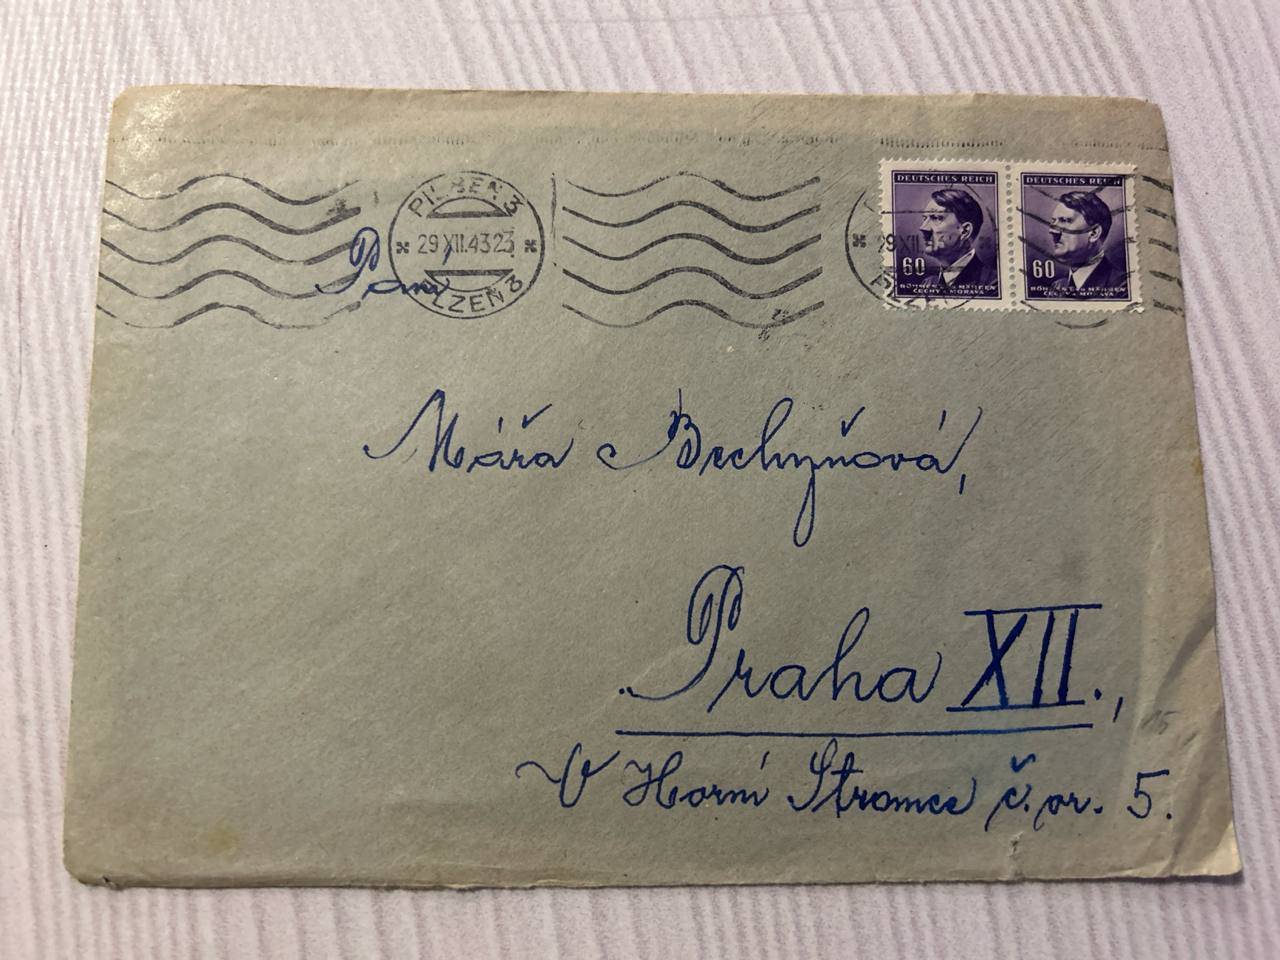 PILSEN 3
29 XII.43 23
PLZEŇ 3
DEUTSCHES REICH
60
BÖHMEN UND MÄHREN
ČECHY A MORAVA
DEUTSCHES REICH
60
BÖHMEN UND MÄHREN
ČECHY A MORAVA
29 XII
Paní
Mářa Bechyňová,
Praha XII.,
V Horní Stromce č. or. 5.
15